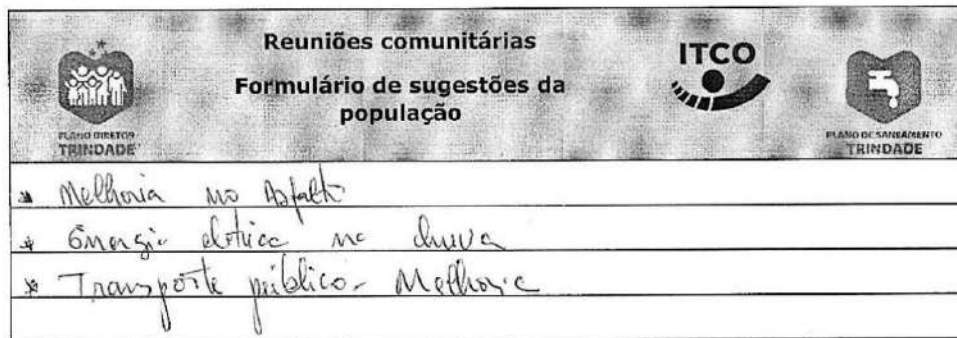 Reuniões comunitárias
Formulário de sugestões da
população
PLANO DIRETOR
TRINDADE
ITCO
PLANO DE SANEAMENTO
TRINDADE
* Melhoria no Asfalto
* Energia elétrica na chuva
* Transporte público - Melhoria